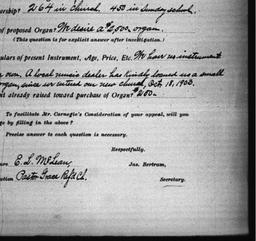 ership? 264 in Church 450 in Sunday school.
of proposed Organ? We desire a $2,000 organ.
(This question is for explicit answer after investigation.)
ulars of present Instrument, Age, Price, Etc. We have no instrument
now. A local music dealer has kindly loaned us a small
organ since we entered our new church, Oct. 18, 1903.
nt already raised toward purchase of Organ?
To facilitate Mr. Carnegie's Consideration of your appeal, will you
ge by filling in the above?
Precise answer to each question is necessary.
Respectfully,
E. L. McLean,
Jas. Bertram,
ition Pastor Grace Ref'd Ch.
Secretary.